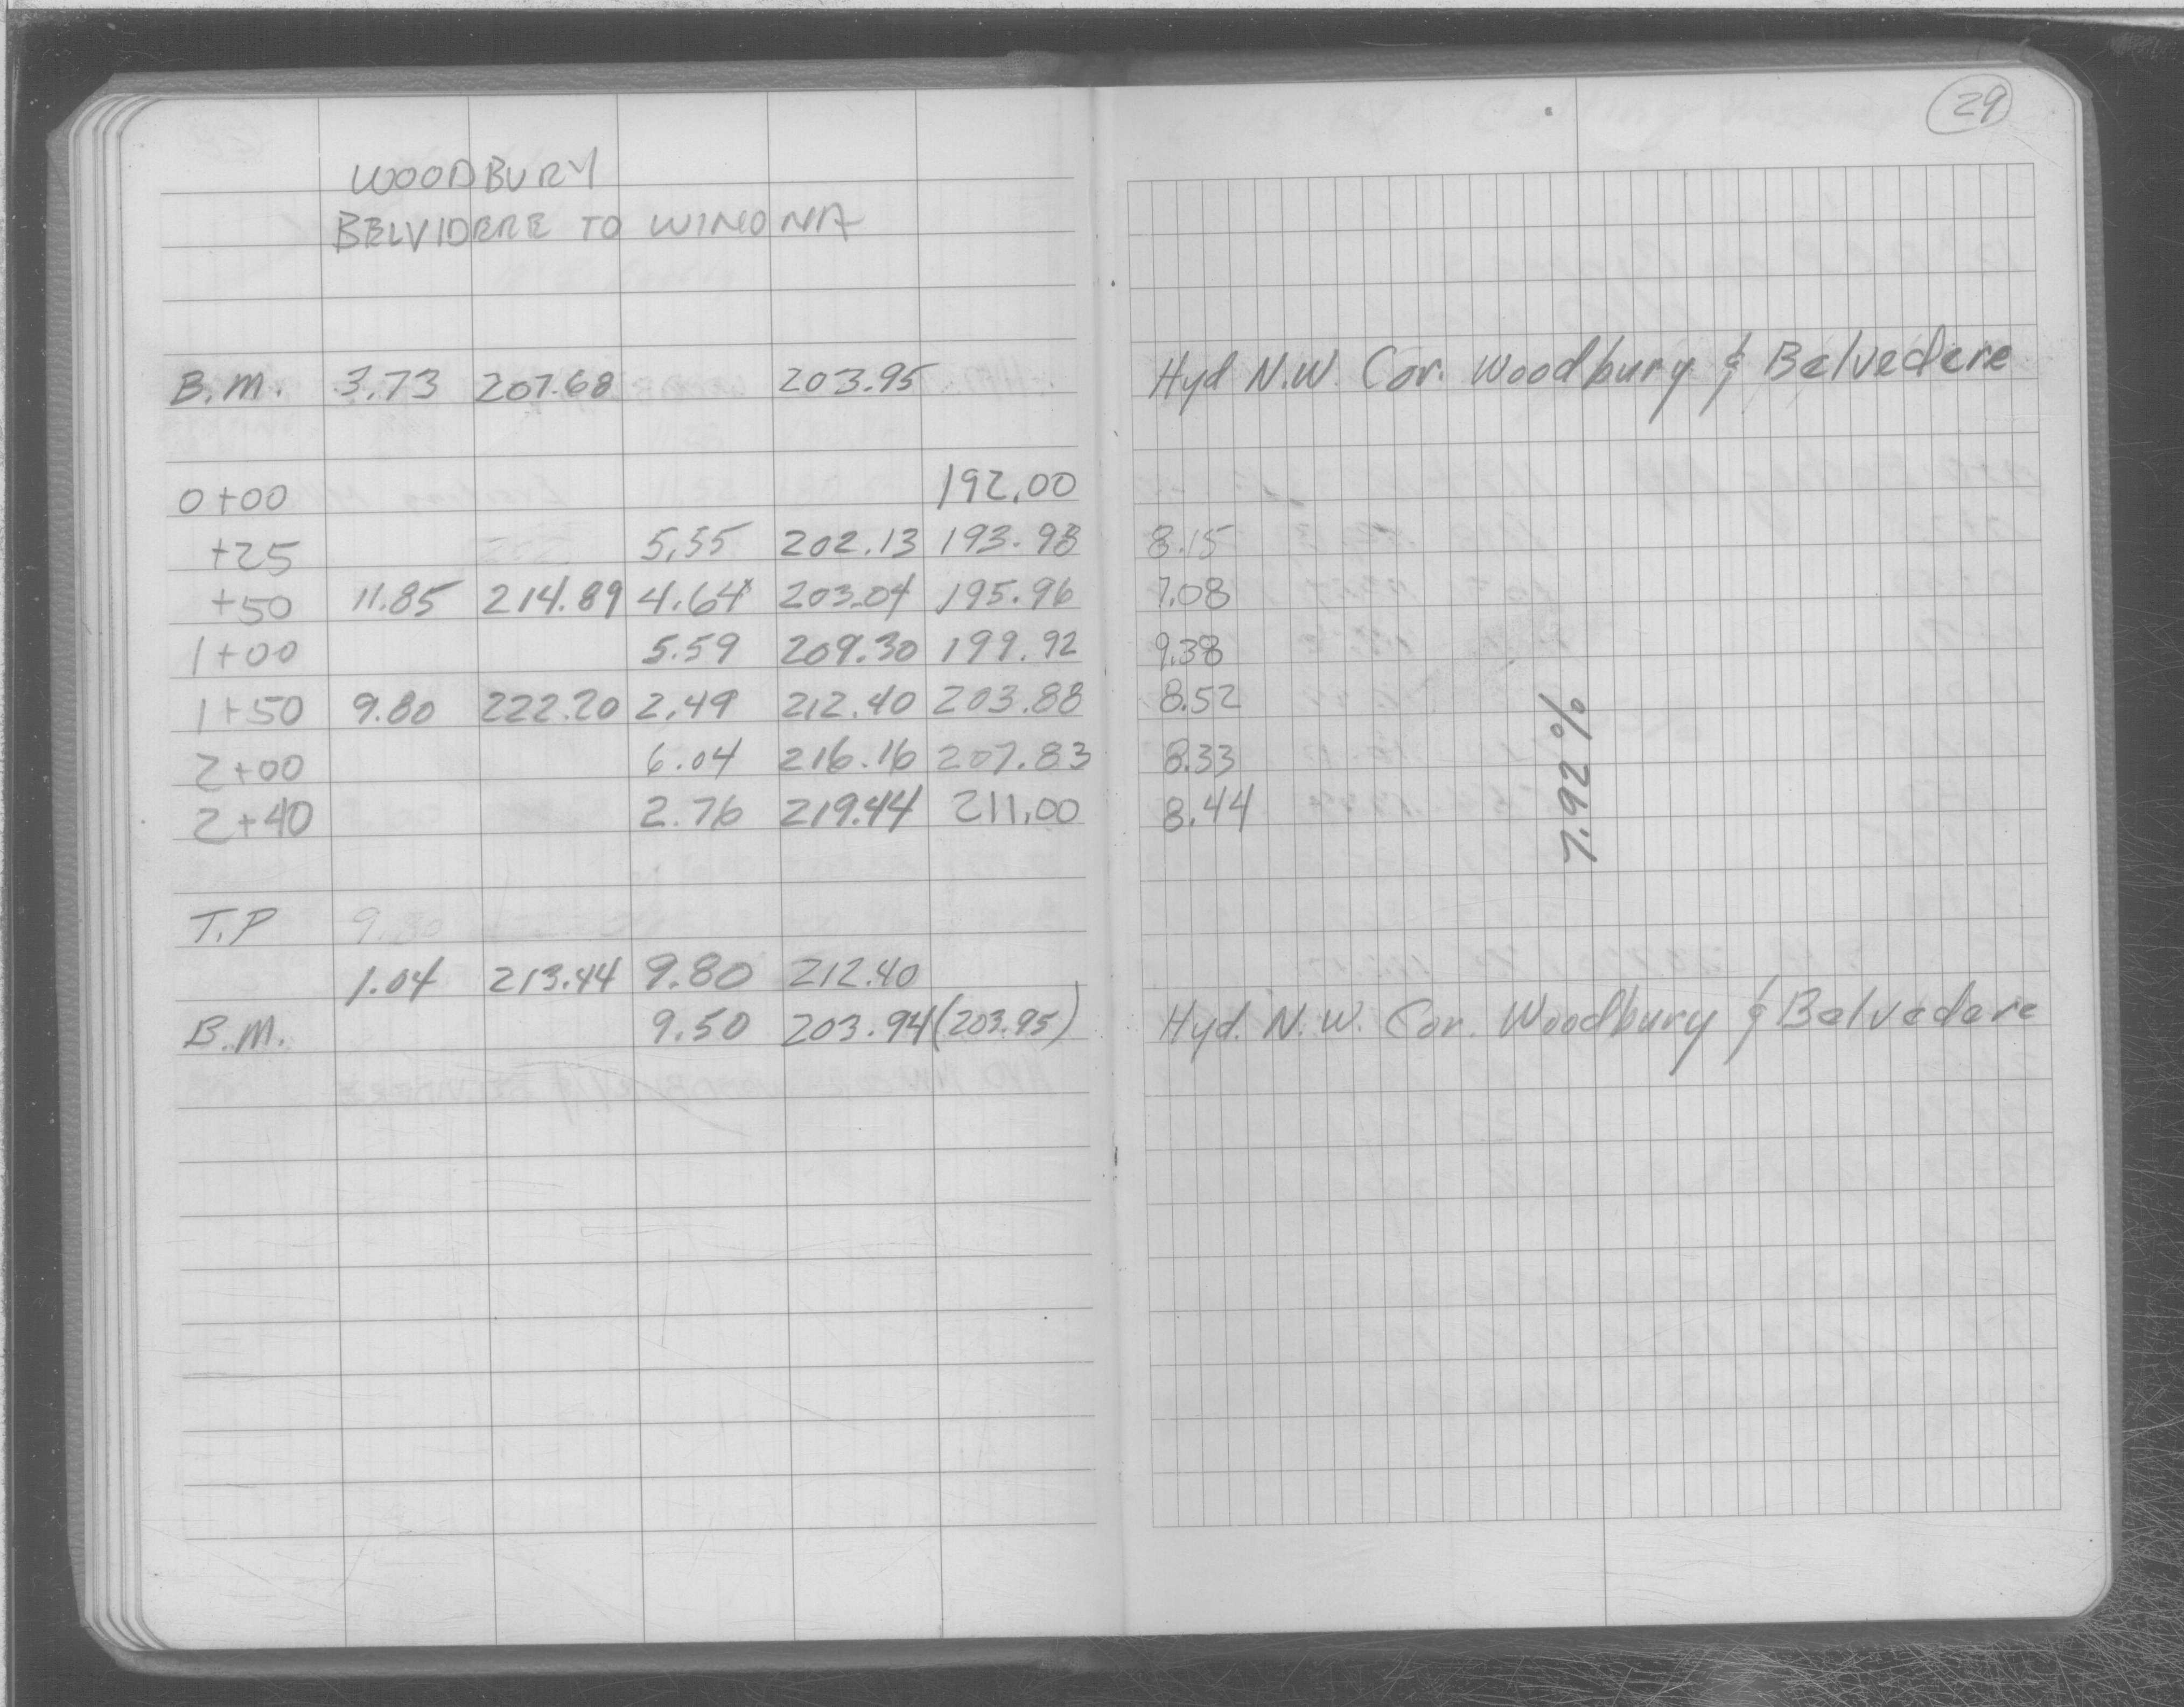 29
WOODBURY
BELVIDERE TO WINONA
B.M. 3.73 207.68 203.95 Hyd N.W. Cor. Woodbury & Belvedere
0+00 192.00
+25 5.55 202.13 193.98 8.15
+50 11.85 214.89 4.64 203.04 195.96 7.08
1+00 5.59 209.30 199.92 9.38
1+50 9.80 222.20 2.49 212.40 203.88 8.52
2+00 6.04 216.16 207.83 8.33
2+40 2.76 219.44 211.00 8.44
7.92%
T.P 9.80
1.04 213.44 9.80 212.40
B.M. 9.50 203.94 (203.95) Hyd. N.W. Cor. Woodbury & Belvedere